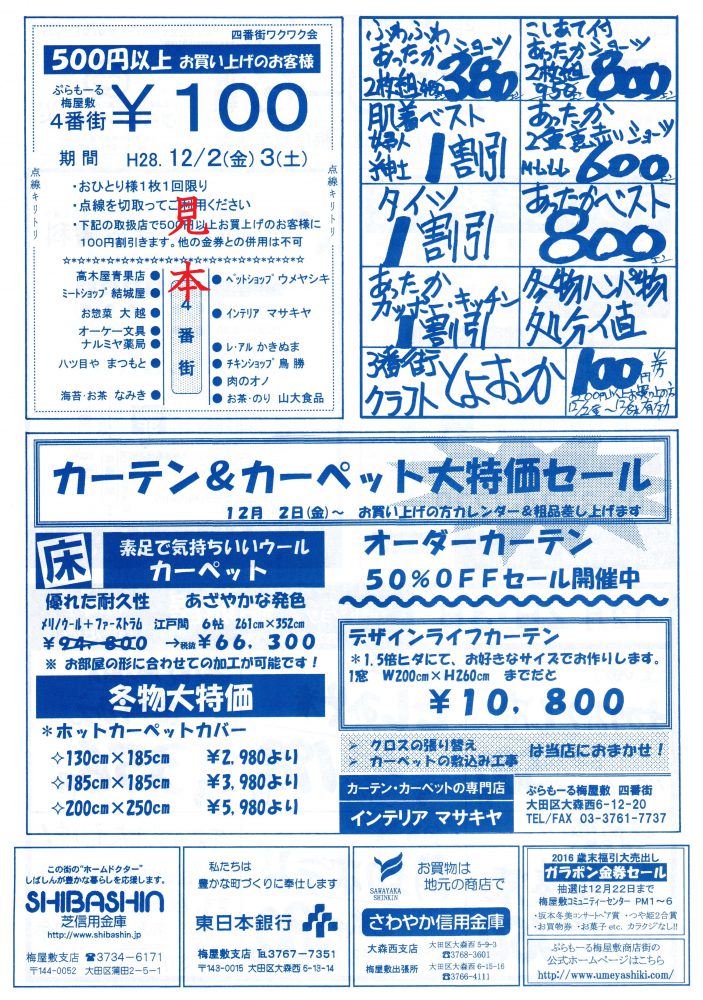 四番街ワクワク会
500円以上 お買い上げのお客様
ぷらもーる
梅屋敷
4番街
￥100
期間 H28. 12/2(金) 3(土)
点線キリトリ
点線キリトリ
・おひとり様1枚1回限り
・点線を切取ってご利用ください
・下記の取扱店で500円以上お買上げのお客様に
100円割引きます。他の金券との併用は不可
見本
高木屋青果店
ミートショップ 結城屋
お惣菜 大越
オーケー文具
ナルミヤ薬局
八ツ目や まつもと
海苔・お茶 なみき
4番街
ペットショップ ウメヤシキ
インテリア マサキヤ
レ・アル かきぬま
チキンショップ 鳥勝
肉のオノ
お茶・のり 山大食品
ふわふわ
あったかショーツ
2枚組
380
こしあて付
あったかショーツ
2枚組
800
肌着ベスト
婦人
紳士
1割引
あったか
2重裏売りショーツ
600
タイツ
1割引
あったかベスト
800
あったか
カッポー・キッチン
1割引
冬物ハンパ物
処分値
3番街
クラフト とよおか
100円
カーテン＆カーペット大特価セール
12月 2日(金)～ お買い上げの方カレンダー＆粗品差し上げます
床
素足で気持ちいいウール
カーペット
優れた耐久性 あざやかな発色
メリノウール＋ファーストラム 江戸間 6帖 261cm×352cm
￥94,800 →税抜￥66,300
※ お部屋の形に合わせての加工が可能です！
冬物大特価
＊ホットカーペットカバー
✧130cm×185cm ￥2,980より
✧185cm×185cm ￥3,980より
✧200cm×250cm ￥5,980より
オーダーカーテン
50％OFFセール開催中
デザインライフカーテン
＊1.5倍ヒダにて、お好きなサイズでお作りします。
1窓 W200cm×H260cm までだと
￥10,800
➢ クロスの張り替え
➢ カーペットの敷込み工事
は当店におまかせ！
カーテン・カーペットの専門店
インテリア マサキヤ
ぷらもーる梅屋敷 四番街
大田区大森西6-12-20
TEL/FAX 03-3761-7737
この街の“ホームドクター”
しばしんが豊かな暮らしを応援します。
SHIBASHIN
芝信用金庫
http://www.shibashin.jp
梅屋敷支店 ☎3734-6171
〒144-0052 大田区蒲田2-5-1
私たちは
豊かな町づくりに奉仕します
東日本銀行
梅屋敷支店 ℡3767-7351
〒143-0015 大田区大森西6-13-14
SAWAYAKA
SHINKIN
お買物は
地元の商店で
さわやか信用金庫
大森西支店 大田区大森西5-9-3
☎3768-3601
梅屋敷出張所 大田区大森西6-15-16
☎3766-4111
2016 歳末福引大売出し
ガラポン金券セール
抽選は12月22日まで
梅屋敷コミュニティーセンター PM1～6
・坂本冬美コンサートペア賞 ・つや姫2合賞
・お買物券 ・お菓子 etc. カラクジなし!!
ぷらもーる梅屋敷商店街の
公式ホームページはこちら
http://www.umeyashiki.com/